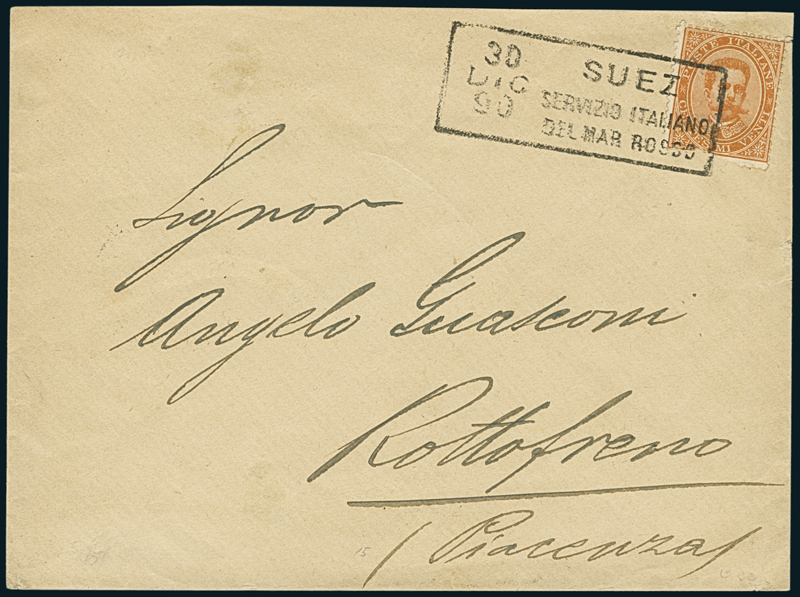 30
DIC
90
SUEZ
SERVIZIO ITALIANO
DEL MAR ROSSO
POSTE ITALIANE
Signor
Angelo Guasconi
Rottofreno
(Piacenza)
15